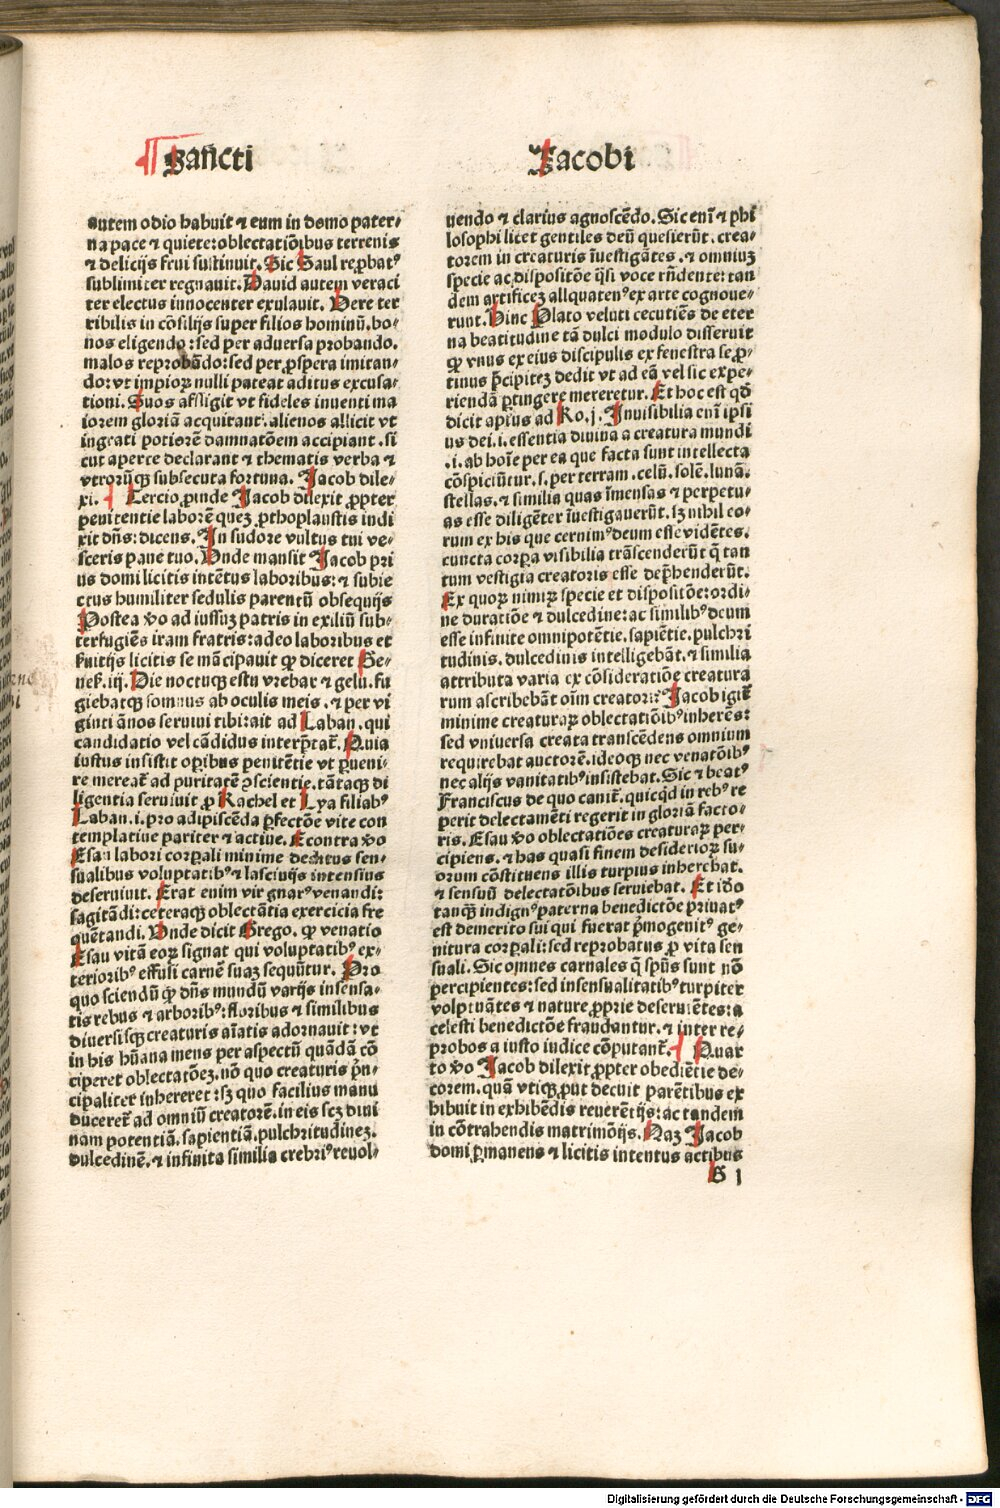 Sancti
Jacobi
autem odio habuit ⁊ eum in domo pater⸗
na pace ⁊ quiete: oblectatiōibus terrenis
⁊ delicijs frui sustinuit. Sic Saul reꝓbatꝰ
sublimiter regnauit. Dauid autem veraci
ter electus innocenter exulauit. Vere ter
ribilis in cōsilijs super filios hominū. bo⸗
nos eligendo: sed per aduersa probando.
malos reprobādo: sed per ꝓspera imitan⸗
do: vt impioꝝ nulli pateat aditus excusa⸗
tioni. Suos affligit vt fideles inuenti ma
iorem gloriā acquirant. alienos allicit vt
ingrati potiorē damnatōem accipiant. si
cut aperte declarant ⁊ thematis verba ⁊
vtrorūqꝫ subsecuta fortuna. Jacob dile⸗
xi. Tercio ꝓinde Jacob dilexit ꝓpter
penitentie laborē quez ꝓthoplaustis indi
xit dn̄s: dicens. In sudore vultus tui ve⸗
sceris pane tuo. Vnde mansit Jacob pri
us domi licitis intētus laboribus: ⁊ subie
ctus humiliter sedulis parentū obsequijs
Postea v̄o ad iussuꝫ patris in exiliū sub⸗
terfugiēs iram fratris: adeo laboribus et
ẜuitijs licitis se mācipauit ꝙ diceret Ge⸗
neẜ. iij. Die noctuqꝫ estu vrebar ⁊ gelu. fu
giebatqꝫ somnus ab oculis meis. ⁊ per vi
ginti ānos seruiui tibi: ait ad Laban. qui
candidatio vel cādidus interp̄tat̄. Quia
iustus insistit oꝑibus penitētie vt ꝑueni⸗
re mereat̄ ad puritatē ꝯscientie. tātaqꝫ di
ligentia seruiuit ꝓ Rachel et Lya filiabꝰ
Laban. i. pro adipiscēda ꝑfectōe vite con
templatiue pariter ⁊ actiue. Econtra v̄o
Esau labori corꝑali minime deditus sen⸗
sualibus voluptatibꝰ ⁊ lasciuijs intensius
deseruiuit. Erat enim vir gnarꝰ venandi:
sagitādi: ceteraqꝫ oblectātia exercicia fre
quētandi. Vnde dicit Grego. ꝙ venatio
Esau vitā eoꝝ signat qui voluptatibꝰ ex⸗
terioribꝰ effusi carnē suaꝫ sequūtur. Pro
quo sciendū ꝙ dn̄s mundū varijs insensa⸗
tis rebus ⁊ arboribꝰ: floribus ⁊ similibus
diuersisqꝫ creaturis aīatis adornauit: vt
in his hūana mens per aspectū quādā cō
ciperet oblectatōez. nō quo creaturis p̄n⸗
cipaliter inhereret: sꝫ quo facilius manu
duceret̄ ad omniū creatorē. in eis scꝫ diui
nam potentiā. sapientiā. pulchritudinez.
dulcedinē. ⁊ infinita similia crebriꝰ reuol⸗
uendo ⁊ clarius agnoscēdo. Sic enī ⁊ phi
losophi licet gentiles deū quesierūt. crea⸗
torem in creaturis īuestigātes. ⁊ omniuꝫ
specie ac dispositōe q̄si voce rn̄dente: tan
dem artificez aliquatenꝰ ex arte cognoue⸗
runt. Hinc Plato veluti cecutiēs de eter
na beatitudine tā dulci modulo disseruit
ꝙ vnus ex eius discipulis ex fenestra se ꝓ⸗
tinus p̄cipitez dedit vt ad eā vel sic expe⸗
riendā ꝑtingere mereretur. Et hoc est qd̄
dicit apl̄us ad Ro. j. Inuisibilia enī ipsi
us dei. i. essentia diuina a creatura mundi
.i. ab hoīe per ea que facta sunt intellecta
cōspiciūtur. s. per terram. celū. solē. lunā.
stellas. ⁊ similia quas īmensas ⁊ perpetu⸗
as esse diligēter īuestigauerūt. sꝫ nihil eo⸗
rum ex his que cernimꝰ deum esse vidētes.
cuncta corꝑa visibilia trāscenderūt q̄ tan
tum vestigia creatoris esse dep̄henderūt.
Ex quoꝝ nimiꝝ specie et dispositōe: ordi⸗
ne duratiōe ⁊ dulcedine: ac similibꝰ deum
esse infinite omnipotētie. sapiētie. pulchri
tudinis. dulcedinis intelligebāt. ⁊ similia
attributa varia ex cōsideratiōe creatura
rum ascribebāt oīm creatori: Jacob igit̄
minime creaturaꝝ oblectatiōibꝰ inherēs:
sed vniuersa creata transcēdens omnium
requirebat auctorē. ideoqꝫ nec venatōibꝰ
nec alijs vanitatibꝰ insistebat. Sic ⁊ beatꝰ
Franciscus de quo canit̄. quicq̄d in rebꝰ re
perit delectamēti regerit in gloriā facto⸗
ris. Esau v̄o oblectatiōes creaturaꝝ per⸗
cipiens. ⁊ has quasi finem desiderioꝝ su⸗
orum cōstituens illis turpius inherebat.
⁊ sensuū delectatōibus seruiebat. Et id̄o
tanqꝫ indignꝰ paterna benedictōe priuatꝰ
est demerito sui qui fuerat p̄mogenitꝰ ge⸗
nitura corꝑali: sed reprobatus ꝓ vita sen
suali. Sic omnes carnales q̄ sp̄us sunt nō
percipientes: sed insensualitatibꝰ turpiter
voluptuātes ⁊ nature ꝓprie deseruiētes: a
celesti benedictōe fraudantur. ⁊ inter re⸗
probos a iusto iudice cōputant̄. Quar
to v̄o Jacob dilexit ꝓpter obediētie de⸗
corem. quā vtiqꝫ ꝓut decuit parētibus ex
hibuit in exhibēdis reuerētijs: ac tandem
in cōtrahendis matrimōijs. Naꝫ Jacob
domi ꝑmanens ⁊ licitis intentus actibus
G 1
Digitalisierung gefördert durch die Deutsche Forschungsgemeinschaft - DFG